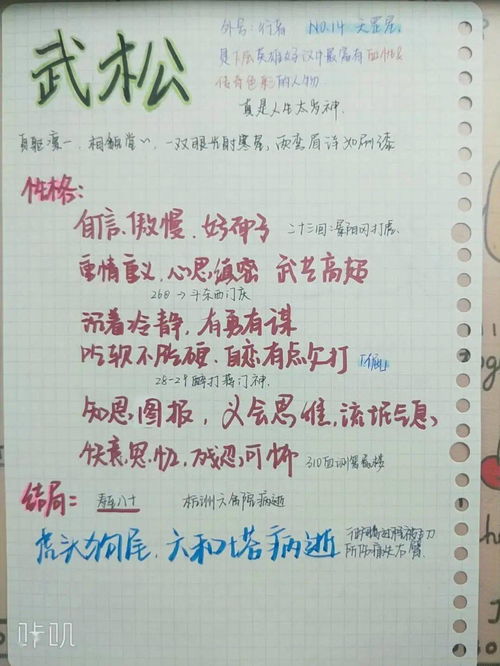 武松
外号:行者 NO.14 天罡星,
是下层英雄好汉中最富有血性和
传奇色彩的人物
真是人生太岁神.
身躯凛一,相貌堂〃,一双眼光射寒星,两弯眉浑如刷漆
性格:
自言、傲慢、好面子 二十三回:景阳冈打虎.
重情重义,心思缜密 武艺高超
26回→斗杀西门庆
沉着冷静,有勇有谋
吃软不吃硬,自恋有点欠打
28-29醉打蒋门神.
知恩图报,义会思维,流氓气息,
快意恩仇,残忍可怖 31回血溅鸳鸯楼
结局: 寿年八十 杭州六和院病逝
虎头狗尾,六和塔病逝
所伤痛失右臂.
咔叽